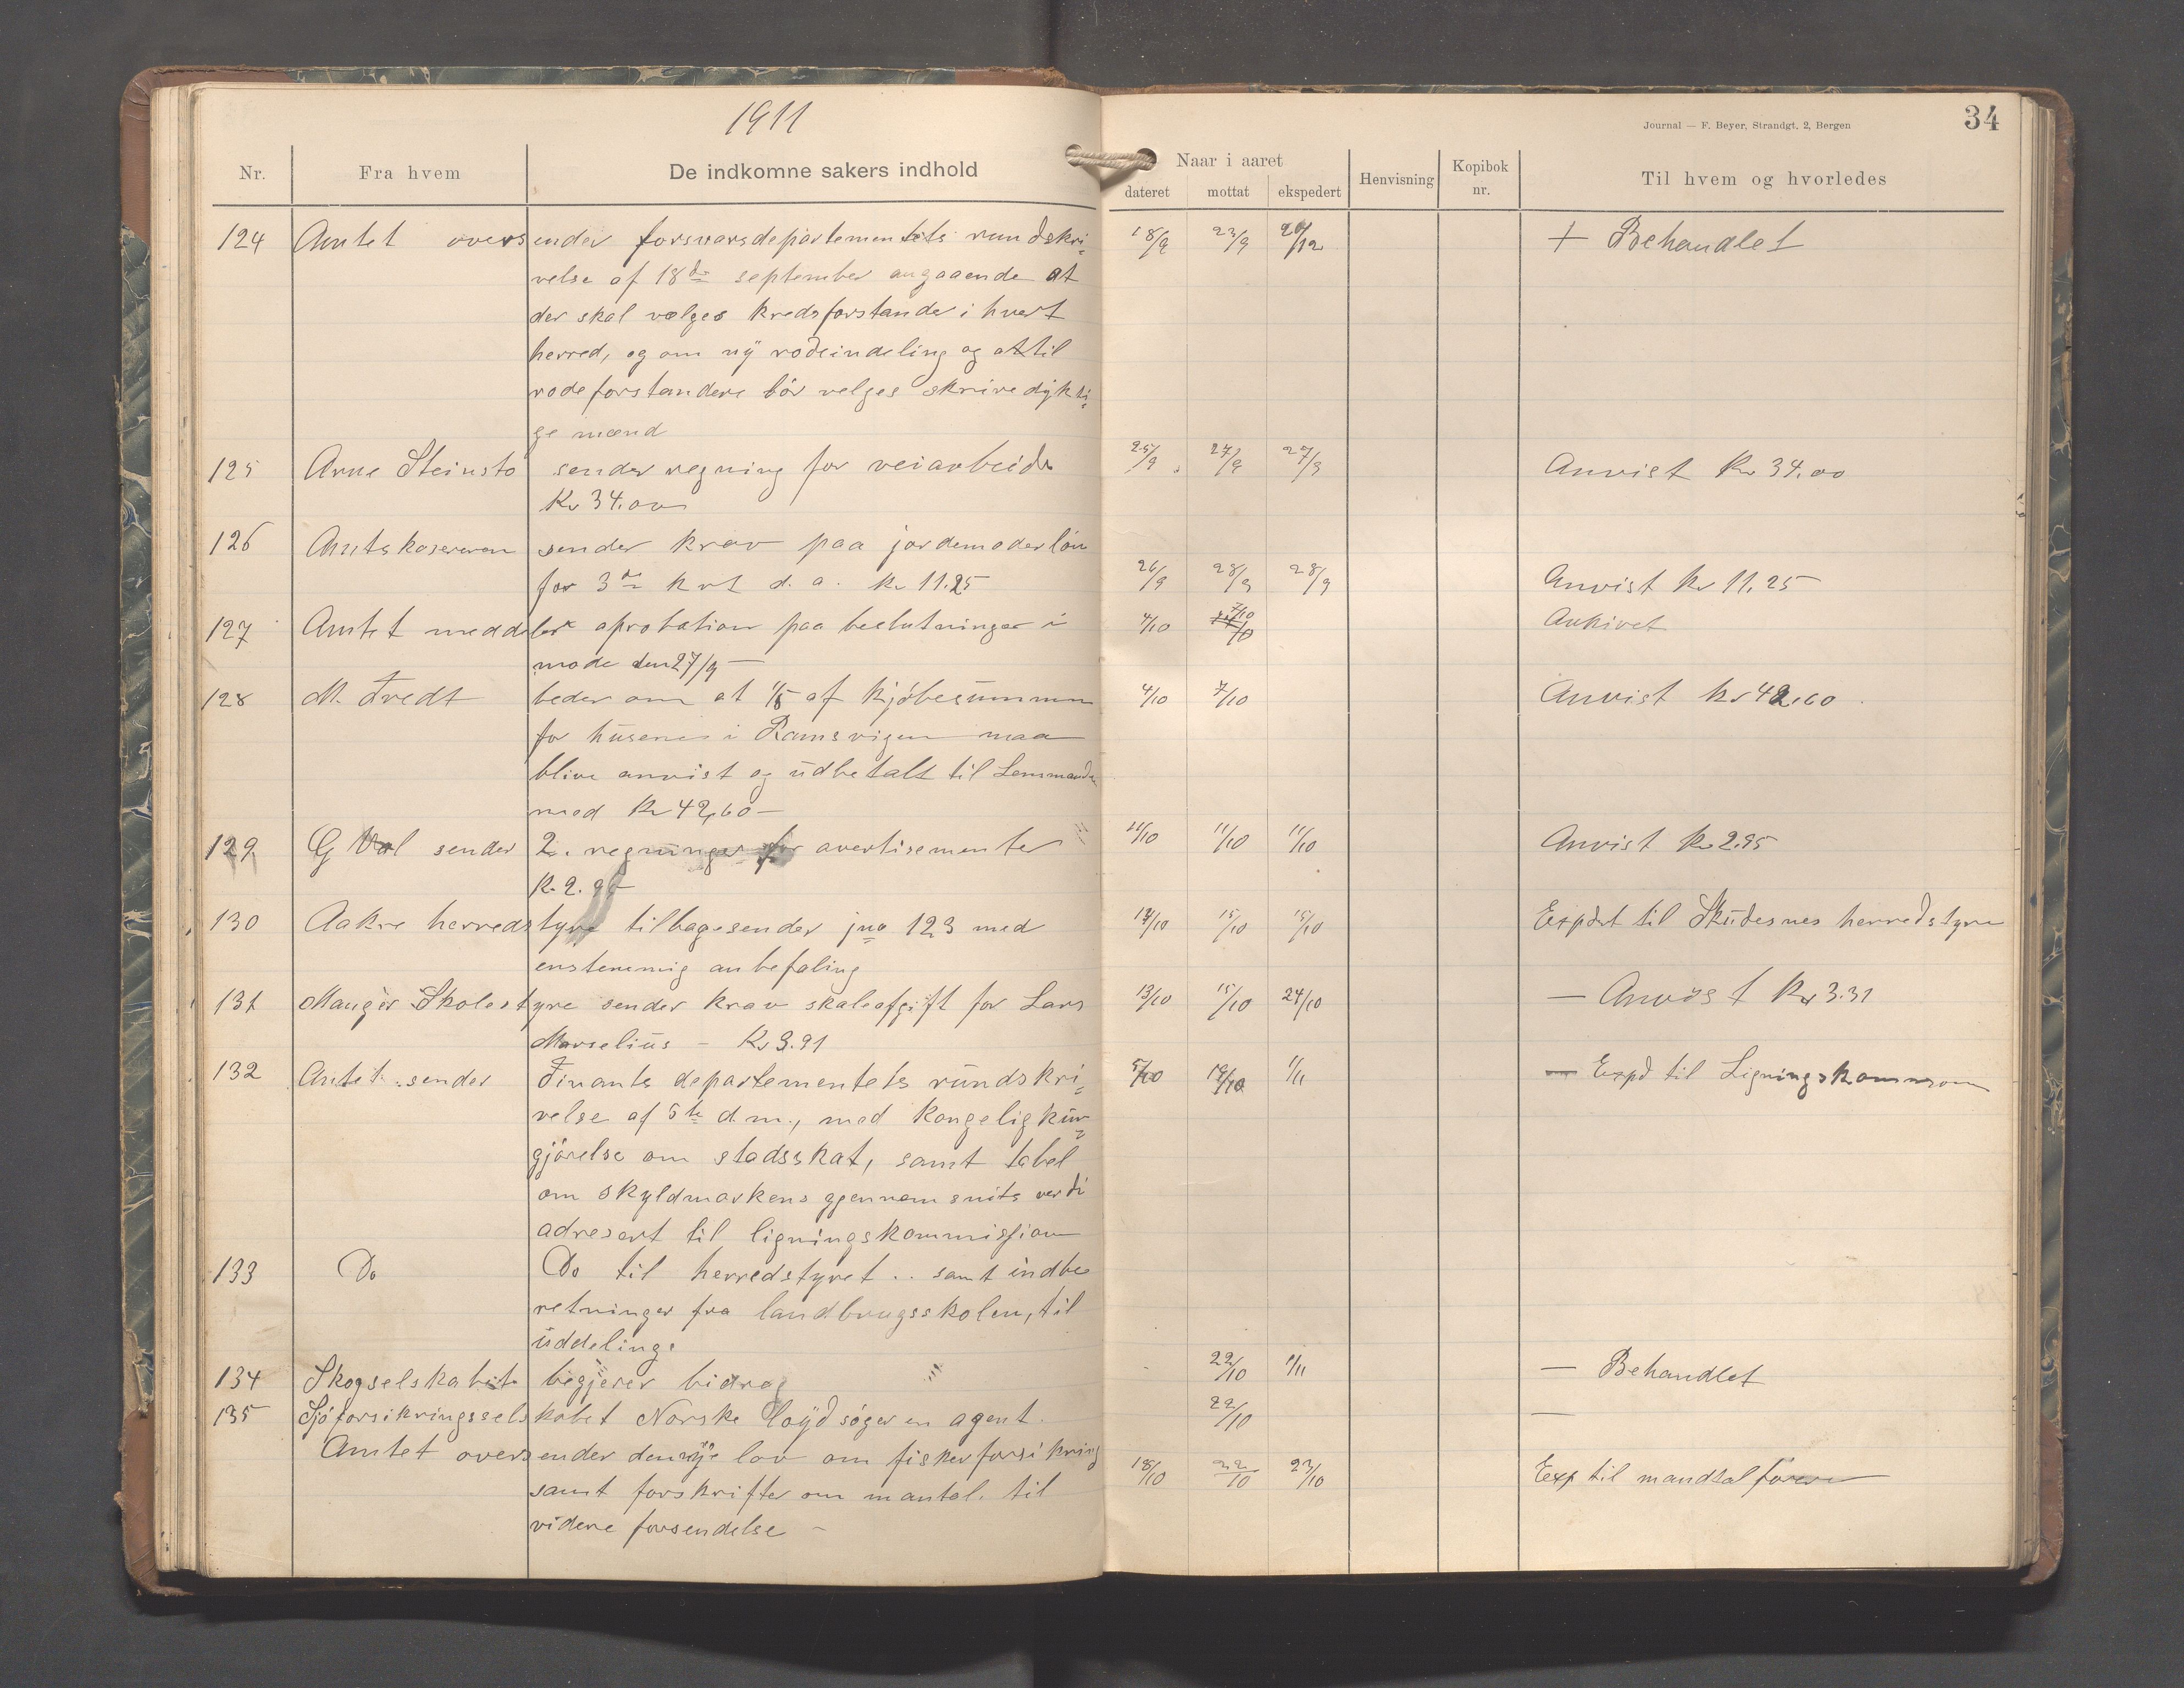 1911
34
Journal — F. Beyer, Strandgt. 2, Bergen
Nr. Fra hvem De indkomne sakers indhold Naar i aaret dateret mottat ekspedert Henvisning Kopibok nr. Til hvem og hvorledes
124 Amtet oversender forsvarsdepartementets rundskri- 18/9 23/9 20/12 + Behandlet
velse af 18de september angaaende at
der skal vælges kredsforstander i hvert
herred, og om ny rodeindeling og at til
rodeforstandere bør velges skrivedykti-
ge mænd
125 Arne Steinstø sender regning for veiarbeide 25/9 27/9 27/9 Anvist Kr 34.00
Kr 34.00
126 Amtskasereren sender krav paa jordemoderløn
for 3de kvt d. a. kr 11.25 26/9 28/9 28/9 Anvist kr 11.25
127 Amtet meddeler aprobation paa beslutninger i 4/10 7/10 Arkivet
møde den 27/9 —
128 M. Tvedt beder om at 1/5 af kjøbesummen 4/10 7/10 Anvist kr 42.60
for husene i Ramsvigen maa
blive anvist og udbetalt til Lensmanden
med Kr 42,60 —
129 G Val sender 2. regninger for avertisementer 11/10 11/10 11/10 Anvist kr 2.95
K. 2.95
130 Aakre herredstyre tilbagesender jno 123 med 13/10 15/10 15/10 Expdrt til Skudesnes herredstyre
enstemmig anbefaling
131 Manger Skolestyre sender krav skoleafgift for Lars 13/10 15/10 24/10 — Anvist Kr 3.31
Marselius — Kr 3.91
132 Amtet sender Finants departementets rundskri- 5/10 19/10 1/11 — Expd til Ligningskommsion
velse af 5te d.m., med kongelig kun-
gjørelse om stadsskat, samt tabel
om skyldmarkens gjennemsnits verdi
adresert til ligningskommission
133 Do Do til herredstyret .. samt indbe
retninger fra landbrugsskolen, til
uddeling.
134 Skogselskabet begjerer bidrag 22/10 1/11 — Behandlet
135 Sjøforsikringsselskabet Norske Loyd søger en agent. 22/10 —
Amtet oversender den nye lov om fiskerforsikring 18/10 22/10 23/10 Exp til mandtalfører
samt forskrifter om mantal. til
videre forsendelse —